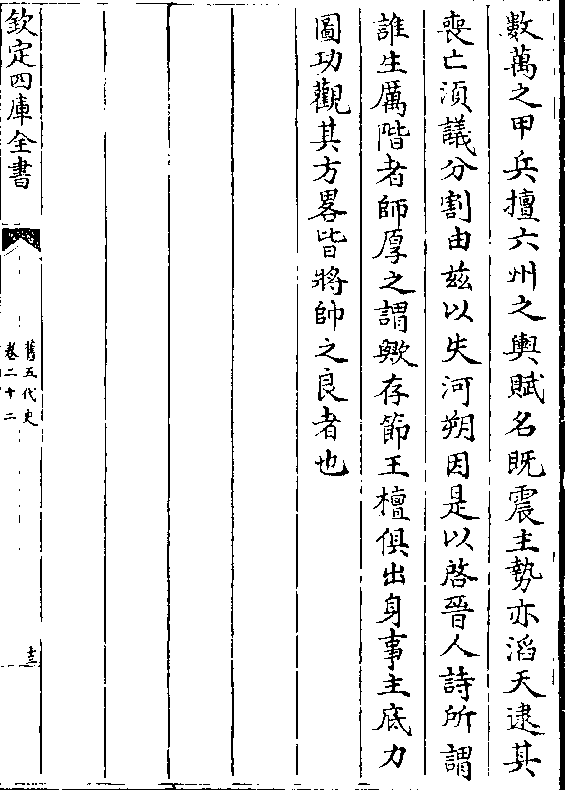 數萬之甲兵擅六州之輿賦名既震主勢亦滔天逮其
喪亡湏議分割由兹以失河朔因是以啓晉人詩所謂
誰生厲階者師厚之謂歟存節王檀俱出身事主底力
圖功觀其方畧皆將帥之良者也
欽定四庫全書
舊五代史
卷二十二
十三